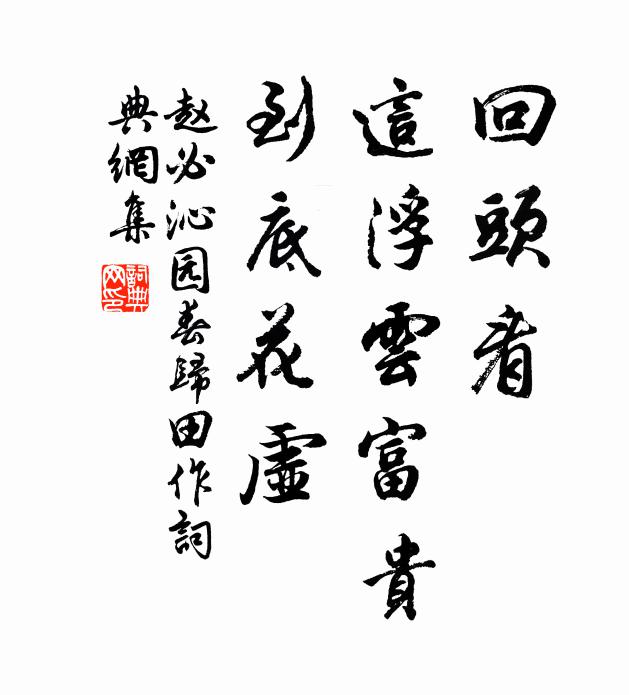 回頭看
這浮雲富貴
到底花虛
赵必沁园春歸田作詞
典網集
詞典網印